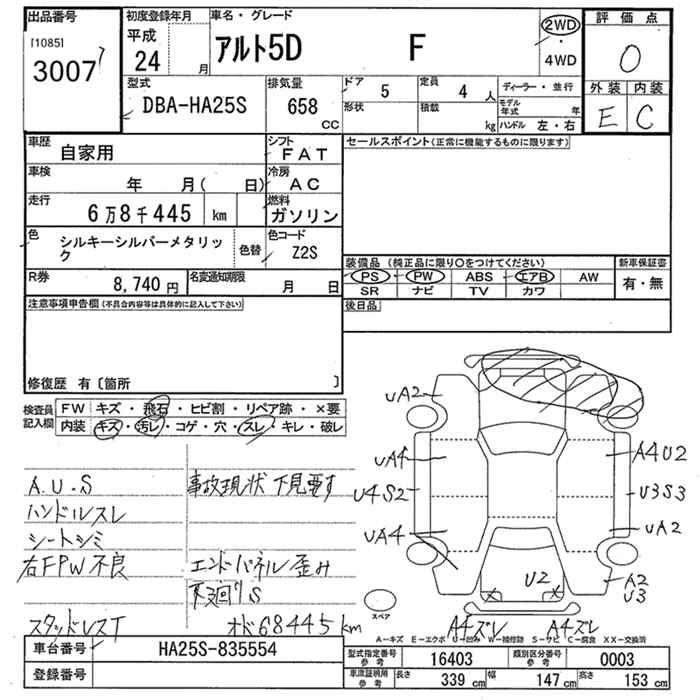 出品番号
[1085]
3007
初度登録年月
平成
24
月
車名・グレード
アルト5D F
2WD
・
4WD
評価点
0
外装 内装
E C
型式
DBA-HA25S
排気量
658
CC
ドア
5
形状
定員
4 人
積載
kg
ディーラー・並行
モデル年式 年
ハンドル 左・右
車歴
自家用
シフト
FAT
車検
年 月( 日)
冷房
AC
走行
6万8千445 km
燃料
ガソリン
色
シルキーシルバーメタリック
色替
色コード
Z2S
R券
8,740 円
名変通知期限
月 日
セールスポイント(正常に機能するものに限ります)
装備品(純正品に限り○をつけてください)
PS PW ABS エアB AW
SR ナビ TV カワ
新車保証書
有・無
後日品
注意事項申告欄(不具合内容等は具体的に記入して下さい)
修復歴 有〔箇所 〕
検査員記入欄
FW キズ・飛石・ヒビ割・リペア跡・×要
内装 キズ・汚レ・コゲ・穴・スレ・キレ・破レ
A.U.S
ハンドルスレ
シートシミ
右FPW不良
スタッドレスT
事故現状 下見要す
エンドパネル歪み
下廻りS
オド68445km
UA2
UA4
U4S2
UA4
A4U2
U3S3
UA2
U2
A2
U3
A4ズレ
A4ズレ
スペア
A−キズ E−エクボ U−凹み W−補修跡 S−サビ C−腐食 XX−交換済
車台番号
HA25S-835554
登録番号
型式指定番号
参考
16403
類別区分番号
参考
0003
車庫証明用
参考
長さ 339 cm 幅 147 cm 高さ 153 cm